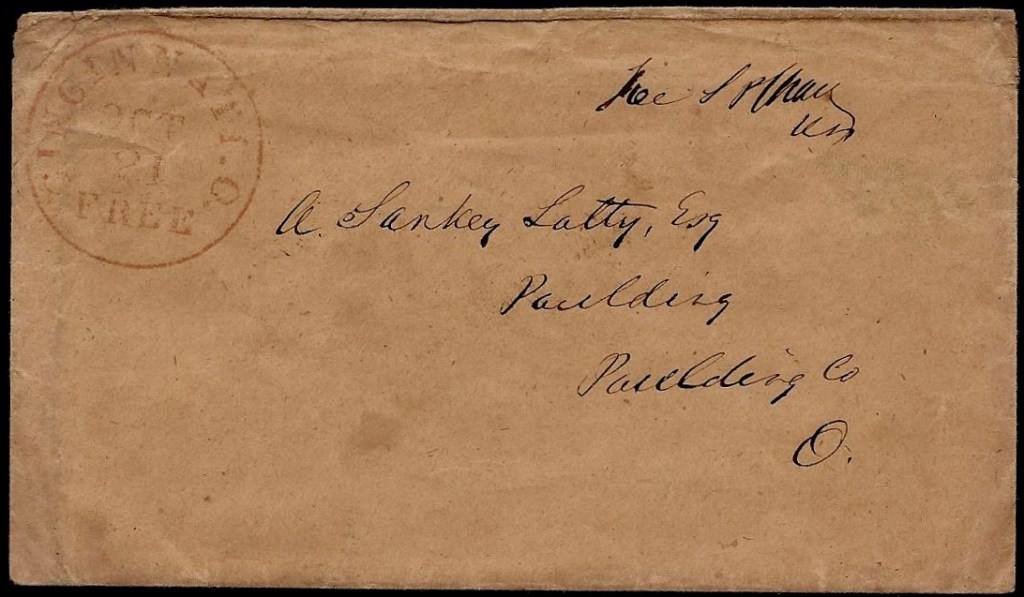 CINCINNATI. O.
OCT
21
FREE
Free S P Chase
USS
A. Sankey Latty, Esq
Paulding
Paulding Co
O.